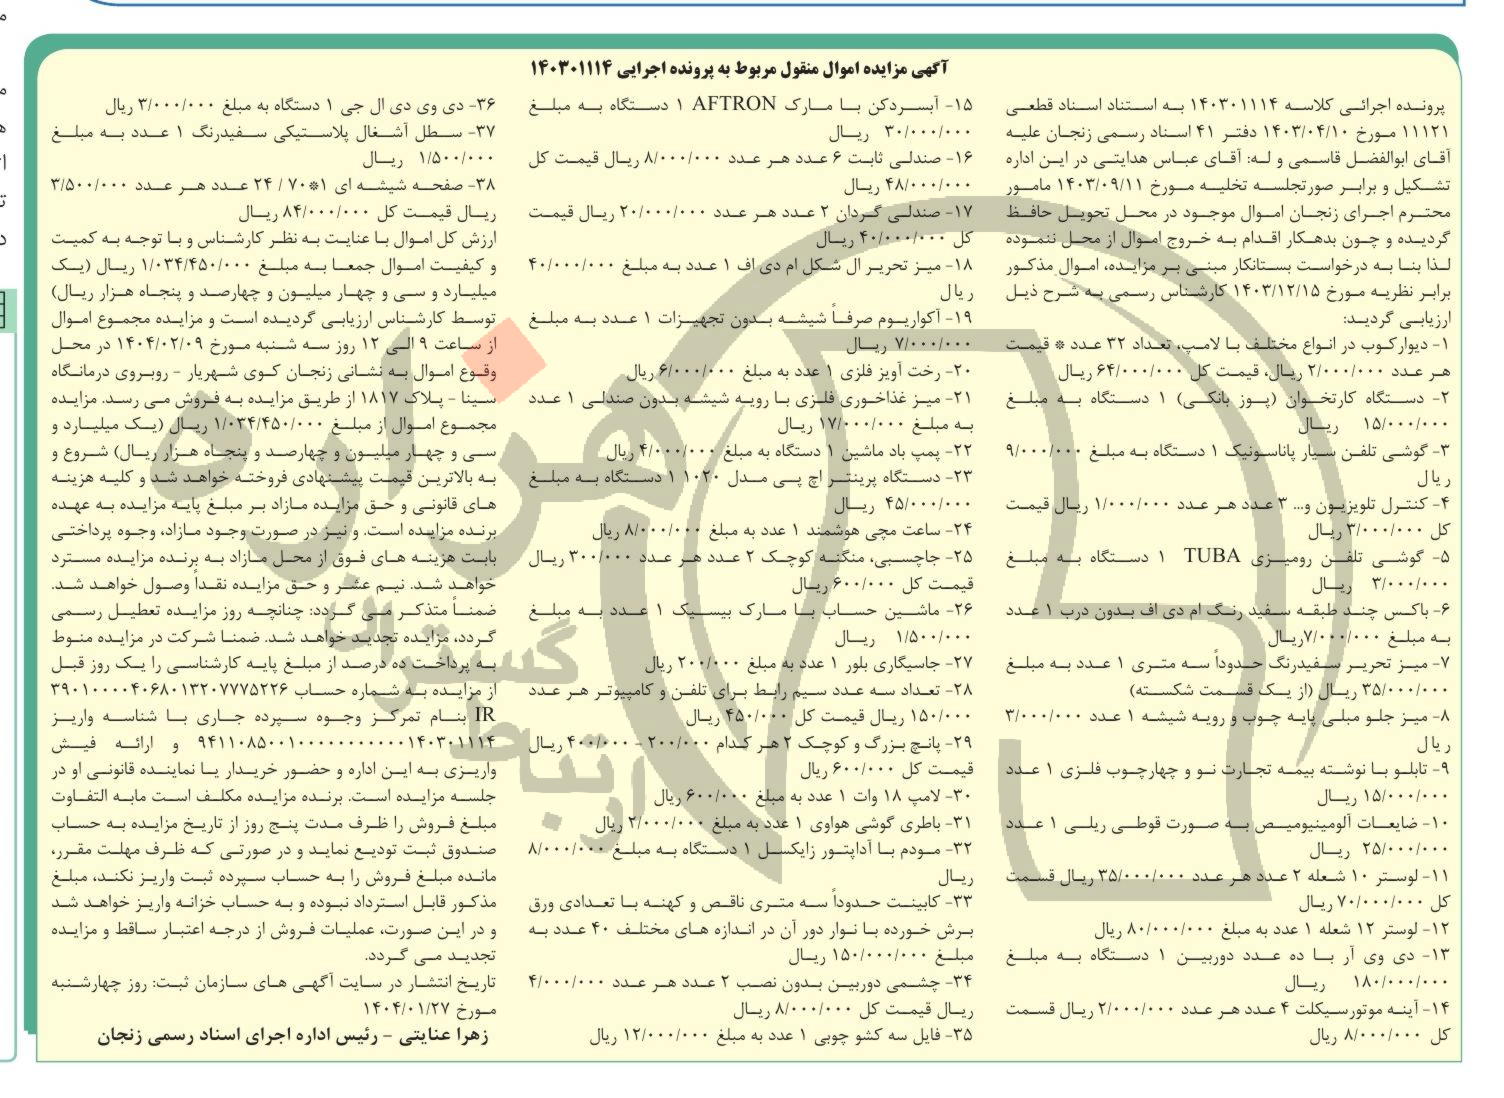 آگهی مزایده اموال منقول مربوط به پرونده اجرایی ۱۴۰۳۰۱۱۱۴
پرونده اجرائی کلاسه ۱۴۰۳۰۱۱۱۴ به استناد اسناد قطعی
۱۱۱۲۱ مورخ ۱۴۰۳/۰۴/۱۰ دفتر ۴۱ اسناد رسمی زنجان علیه
آقای ابوالفضل قاسمی و له: آقای عباس هدایتی در این اداره
تشکیل و برابر صورتجلسه تخلیه مورخ ۱۴۰۳/۰۹/۱۱ مامور
محترم اجرای زنجان اموال موجود در محل تحویل حافظ
گردیده و چون بدهکار اقدام به خروج اموال از محل ننموده
لذا بنا به درخواست بستانکار مبنی بر مزایده، اموال مذکور
برابر نظریه مورخ ۱۴۰۳/۱۲/۱۵ کارشناس رسمی به شرح ذیل
ارزیابی گردید:
۱- دیوارکوب در انواع مختلف با لامپ، تعداد ۳۲ عدد * قیمت
هر عدد ۲/۰۰۰/۰۰۰ ریال، قیمت کل ۶۴/۰۰۰/۰۰۰ ریال
۲- دستگاه کارتخوان (پوز بانکی) ۱ دستگاه به مبلغ
۱۵/۰۰۰/۰۰۰ ریال
۳- گوشی تلفن سیار پاناسونیک ۱ دستگاه به مبلغ ۹/۰۰۰/۰۰۰
ریال
۴- کنترل تلویزیون و... ۳ عدد هر عدد ۱/۰۰۰/۰۰۰ ریال قیمت
کل ۳/۰۰۰/۰۰۰ ریال
۵- گوشی تلفن رومیزی TUBA ۱ دستگاه به مبلغ
۳/۰۰۰/۰۰۰ ریال
۶- باکس چند طبقه سفید رنگ ام دی اف بدون درب ۱ عدد
به مبلغ ۷/۰۰۰/۰۰۰ریال
۷- میز تحریر سفیدرنگ حدوداً سه متری ۱ عدد به مبلغ
۳۵/۰۰۰/۰۰۰ ریال (از یک قسمت شکسته)
۸- میز جلو مبلی پایه چوب و رویه شیشه ۱ عدد ۳/۰۰۰/۰۰۰
ریال
۹- تابلو با نوشته بیمه تجارت نو و چهارچوب فلزی ۱ عدد
۱۵/۰۰۰/۰۰۰ ریال
۱۰- ضایعات آلومینیومیص به صورت قوطی ریلی ۱ عدد
۲۵/۰۰۰/۰۰۰ ریال
۱۱- لوستر ۱۰ شعله ۲ عدد هر عدد ۳۵/۰۰۰/۰۰۰ ریال قسمت
کل ۷۰/۰۰۰/۰۰۰ ریال
۱۲- لوستر ۱۲ شعله ۱ عدد به مبلغ ۸۰/۰۰۰/۰۰۰ ریال
۱۳- دی وی آر با ده عدد دوربین ۱ دستگاه به مبلغ
۱۸۰/۰۰۰/۰۰۰ ریال
۱۴- آینه موتورسیکلت ۴ عدد هر عدد ۲/۰۰۰/۰۰۰ ریال قسمت
کل ۸/۰۰۰/۰۰۰ ریال
۱۵- آبسردکن با مارک AFTRON ۱ دستگاه به مبلغ
۳۰/۰۰۰/۰۰۰ ریال
۱۶- صندلی ثابت ۶ عدد هر عدد ۸/۰۰۰/۰۰۰ ریال قیمت کل
۴۸/۰۰۰/۰۰۰ ریال
۱۷- صندلی گردان ۲ عدد هر عدد ۲۰/۰۰۰/۰۰۰ ریال قیمت
کل ۴۰/۰۰۰/۰۰۰ ریال
۱۸- میز تحریر ال شکل ام دی اف ۱ عدد به مبلغ ۴۰/۰۰۰/۰۰۰
ریال
۱۹- آکواریوم صرفاً شیشه بدون تجهیزات ۱ عدد به مبلغ
۷/۰۰۰/۰۰۰ ریال
۲۰- رخت آویز فلزی ۱ عدد به مبلغ ۶/۰۰۰/۰۰۰ ریال
۲۱- میز غذاخوری فلزی با رویه شیشه بدون صندلی ۱ عدد
به مبلغ ۱۷/۰۰۰/۰۰۰ ریال
۲۲- پمپ باد ماشین ۱ دستگاه به مبلغ ۴/۰۰۰/۰۰۰ ریال
۲۳- دستگاه پرینتر اچ پی مدل ۱۰۲۰ ۱ دستگاه به مبلغ
۴۵/۰۰۰/۰۰۰ ریال
۲۴- ساعت مچی هوشمند ۱ عدد به مبلغ ۸/۰۰۰/۰۰۰ ریال
۲۵- جاچسبی، منگنه کوچک ۲ عدد هر عدد ۳۰۰/۰۰۰ ریال
قیمت کل ۶۰۰/۰۰۰ ریال
۲۶- ماشین حساب با مارک بیسیک ۱ عدد به مبلغ
۱/۵۰۰/۰۰۰ ریال
۲۷- جاسیگاری بلور ۱ عدد به مبلغ ۲۰۰/۰۰۰ ریال
۲۸- تعداد سه عدد سیم رابط برای تلفن و کامپیوتر هر عدد
۱۵۰/۰۰۰ ریال قیمت کل ۴۵۰/۰۰۰ ریال
۲۹- پانچ بزرگ و کوچک ۲ هر کدام ۲۰۰/۰۰۰ - ۴۰۰/۰۰۰ ریال
قیمت کل ۶۰۰/۰۰۰ ریال
۳۰- لامپ ۱۸ وات ۱ عدد به مبلغ ۶۰۰/۰۰۰ ریال
۳۱- باطری گوشی هواوی ۱ عدد به مبلغ ۲/۰۰۰/۰۰۰ ریال
۳۲- مودم با آداپتور زایکسل ۱ دستگاه به مبلغ ۸/۰۰۰/۰۰۰
ریال
۳۳- کابینت حدوداً سه متری ناقص و کهنه با تعدادی ورق
برش خورده با نوار دور آن در اندازه های مختلف ۴۰ عدد به
مبلغ ۱۵۰/۰۰۰/۰۰۰ ریال
۳۴- چشمی دوربین بدون نصب ۲ عدد هر عدد ۴/۰۰۰/۰۰۰
ریال قیمت کل ۸/۰۰۰/۰۰۰ ریال
۳۵- فایل سه کشو چوبی ۱ عدد به مبلغ ۱۲/۰۰۰/۰۰۰ ریال
۳۶- دی وی دی ال جی ۱ دستگاه به مبلغ ۳/۰۰۰/۰۰۰ ریال
۳۷- سطل آشغال پلاستیکی سفیدرنگ ۱ عدد به مبلغ
۱/۵۰۰/۰۰۰ ریال
۳۸- صفحه شیشه ای ۱*۷۰ / ۲۴ عدد هر عدد ۳/۵۰۰/۰۰۰
ریال قیمت کل ۸۴/۰۰۰/۰۰۰ ریال
ارزش کل اموال با عنایت به نظر کارشناس و با توجه به کمیت
و کیفیت اموال جمعا به مبلغ ۱/۰۳۴/۴۵۰/۰۰۰ ریال (یک
میلیارد و سی و چهار میلیون و چهارصد و پنجاه هزار ریال)
توسط کارشناس ارزیابی گردیده است و مزایده مجموع اموال
از ساعت ۹ الی ۱۲ روز سه شنبه مورخ ۱۴۰۴/۰۲/۰۹ در محل
وقوع اموال به نشانی زنجان کوی شهریار - روبروی درمانگاه
سینا - پلاک ۱۸۱۷ از طریق مزایده به فروش می رسد. مزایده
مجموع اموال از مبلغ ۱/۰۳۴/۴۵۰/۰۰۰ ریال (یک میلیارد و
سی و چهار میلیون و چهارصد و پنجاه هزار ریال) شروع و
به بالاترین قیمت پیشنهادی فروخته خواهد شد و کلیه هزینه
های قانونی و حق مزایده مازاد بر مبلغ پایه مزایده به عهده
برنده مزایده است. و نیز در صورت وجود مازاد، وجوه پرداختی
بابت هزینه های فوق از محل مازاد به برنده مزایده مسترد
خواهد شد. نیم عشر و حق مزایده نقداً وصول خواهد شد.
ضمناً متذکر می گردد: چنانچه روز مزایده تعطیل رسمی
گردد، مزایده تجدید خواهد شد. ضمنا شرکت در مزایده منوط
به پرداخت ده درصد از مبلغ پایه کارشناسی را یک روز قبل
از مزایده به شماره حساب ۳۹۰۱۰۰۰۰۴۰۶۸۰۱۳۲۰۷۷۷۵۲۲۶
IR بنام تمرکز وجوه سپرده جاری با شناسه واریز
۹۴۱۱۰۸۵۰۰۱۰۰۰۰۰۰۰۰۰۰۰۱۴۰۳۰۱۱۱۴ و ارائه فیش
واریزی به این اداره و حضور خریدار یا نماینده قانونی او در
جلسه مزایده است. برنده مزایده مکلف است مابه التفاوت
مبلغ فروش را ظرف مدت پنج روز از تاریخ مزایده به حساب
صندوق ثبت تودیع نماید و در صورتی که ظرف مهلت مقرر،
مانده مبلغ فروش را به حساب سپرده ثبت واریز نکند، مبلغ
مذکور قابل استرداد نبوده و به حساب خزانه واریز خواهد شد
و در این صورت، عملیات فروش از درجه اعتبار ساقط و مزایده
تجدید می گردد.
تاریخ انتشار در سایت آگهی های سازمان ثبت: روز چهارشنبه
مورخ ۱۴۰۴/۰۱/۲۷
زهرا عنایتی - رئیس اداره اجرای اسناد رسمی زنجان
هزاره
گسترش
ارتباط